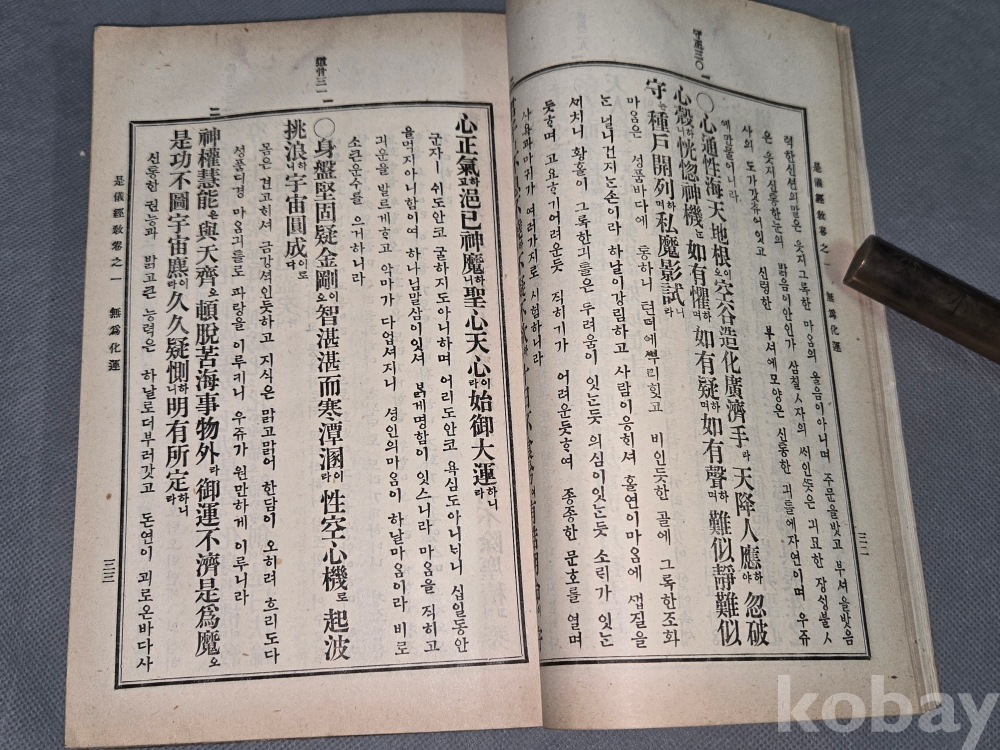 守眞三〇
是儀經敎卷之一 無爲化運 三二
력한신션의말은 웃지그룩한 마음의 울음이아니며 주문을밧고 부셔을밧음
은 웃지신통한눈의 밝음이안인가 삼칠ㅅ자의 씨인뜻은 긔묘한 장성불ㅅ
사의 도가갓츄어잇고 신령한 부셔에모양은 신통한 긔틀에자연이며 우쥬
에만물이니라
○心通性海天地根이오空谷造化廣濟手라天降人應하야忽破
心殼하니恍惚神機는如有懼하며如有疑하며如有聲하며難似靜難似
守는種戶開列하며私魔影試하니라
마음은 성품바다에 통하니 텬디에뿌리힛고 비인듯한 골에 그룩한조화
는 널니건지는손이라 하날이강림하고 사람이응하셔 홀연이마음에 껍질을
쎄치니 황홀이 그룩한긔틀은 두려움이 잇는듯 의심이잇는듯 소래가 잇는
듯하며 고요하기어려운듯 직히기가 어려운듯하여 종종한 문호를 열며
사욕과마귀가 여러가지로 시험하나니라
道骨三一
心正氣하고浥已神魔하니聖心天心이라始御大運하니라
군자ㅣ쉬도안코 굴하지도아니하며 어리도안코 욕심도아니너니 십일동안
을먹지아니함이여 하나님말삼이잇셔 붉게명함이 잇스니라 마음을 직히고
긔운을 발르게하고 악마가 다업셔지니 셩인의마음이 하날마음이라 비로
소큰운수를 으거하니라
○身盤堅固疑金剛이오智湛湛而寒潭溷이라性空心機로起波
挑浪하니宇宙圓成이로다
몸은 견고히셔 금강셕인듯하고 지식은 맑고맑어 한담이 오히려 흐리도다
셩품디경 마음긔틀로 파랑을 이루키니 우쥬가 원만하게 이루니라
三
神權慧能은與天齊오頓脫苦海事物外라御運不濟是爲魔오
是功不圖宇宙應이라久久疑惻하니明有所定하니라
신통한 권능과 밝고큰 능력은 하날로더부러갓고 돈연이 괴로온바다사
是儀經敎卷之一 無爲化運 三三
kobay